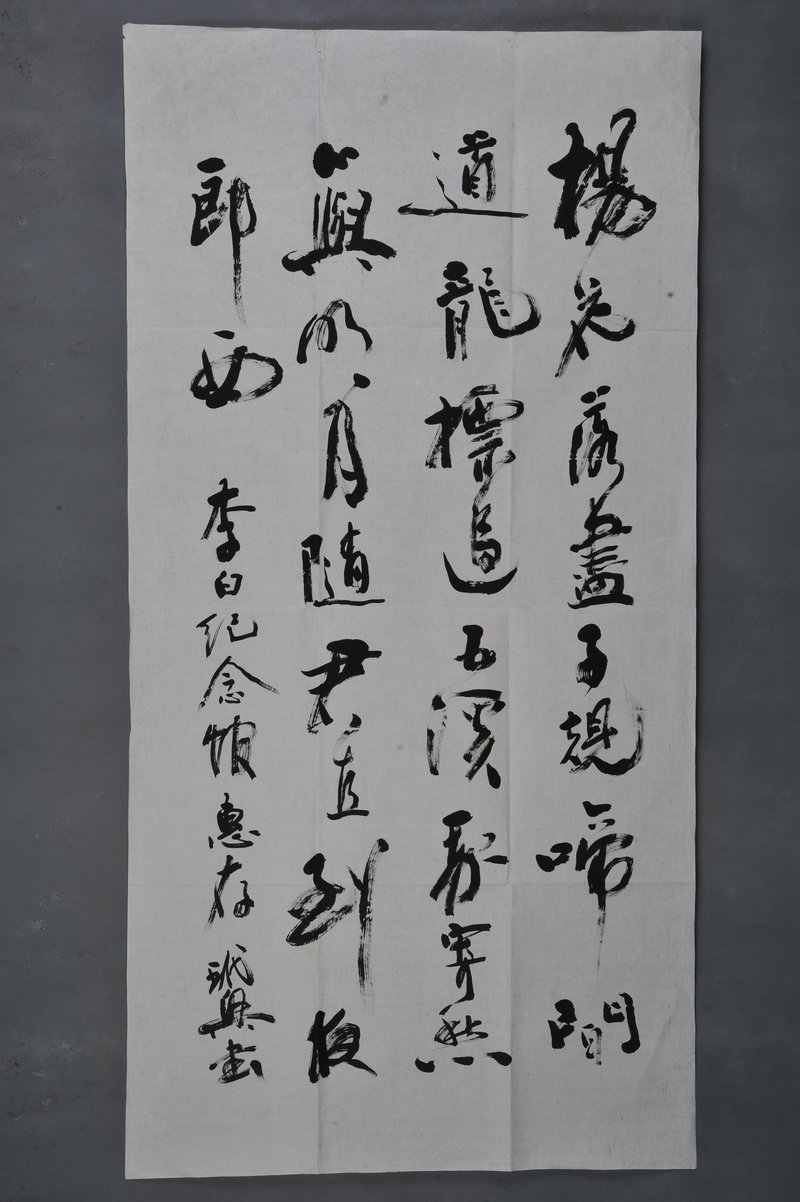 楊花落盡子規啼聞
道龍標過五溪我寄愁
心與明月隨君直到夜
郎西 李白紀念館惠存 書